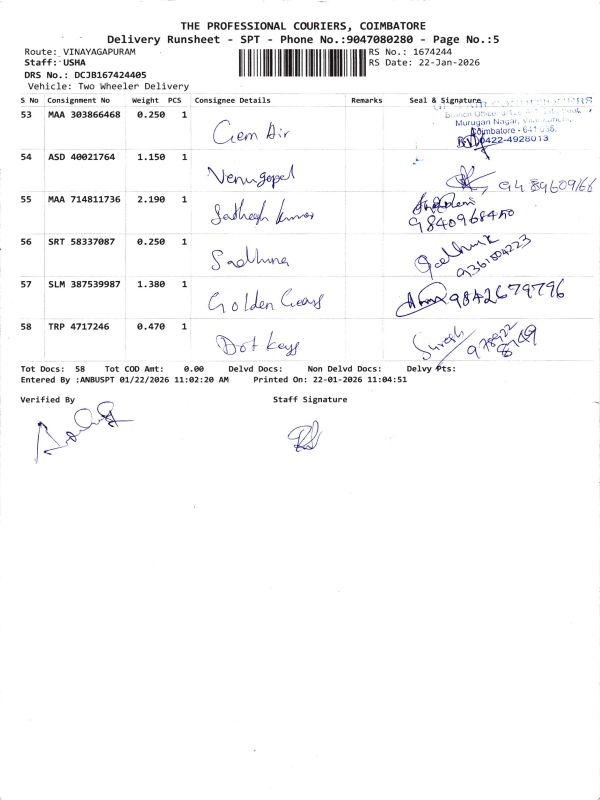 THE PROFESSIONAL COURIERS, COIMBATORE
Delivery Runsheet - SPT - Phone No.:9047080280 - Page No.:5
Route: VINAYAGAPURAM RS No.: 1674244
Staff: USHA RS Date: 22-Jan-2026
DRS No.: DCJB167424405
Vehicle: Two Wheeler Delivery
S No Consignment No Weight PCS Consignee Details Remarks Seal & Signature
53 MAA 303866468 0.250 1 Gem Air
Murugan Nagar,
Coimbatore - 641 035.
0422-4928013
54 ASD 40021764 1.150 1 Venugopel 9489609166
55 MAA 714811736 2.190 1 Sathesh kumar
9840968450
56 SRT 58337087 0.250 1 Sadhuna
9361804223
57 SLM 387539987 1.380 1 Golden Gears 9842679796
58 TRP 4717246 0.470 1 Dot Keys Suresh 978922
8149
Tot Docs: 58 Tot COD Amt: 0.00 Delvd Docs: Non Delvd Docs: Delvy Pts:
Entered By :ANBUSPT 01/22/2026 11:02:20 AM Printed On: 22-01-2026 11:04:51
Verified By Staff Signature